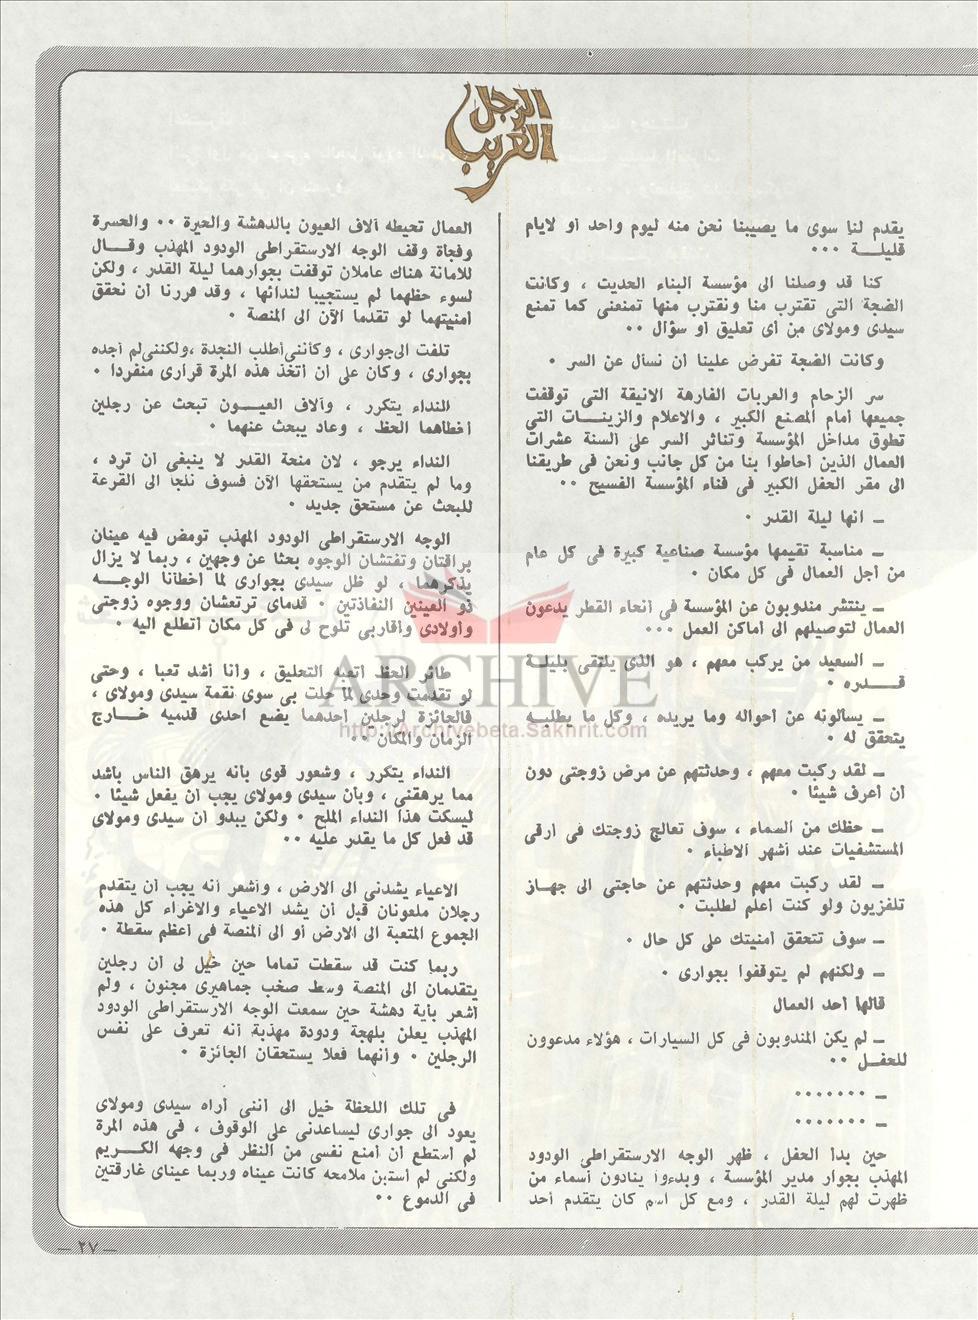 الرجل
الغريب
يقدم لنا سوى ما يصيبنا نحن منه ليوم واحد أو لايام
قليلـــة ٠٠٠
كنا قد وصلنا الى مؤسسة البناء الحديث ، وكانت
الضجة التى تقترب منا ونقترب منها تمنعنى كما تمنع
سيدى ومولاى من أى تعليق أو سؤال ٠٠
وكانت الضجة تفرض علينا أن نسأل عن السر ٠
سر الزحام والعربات الفارهة الانيقة التى توقفت
جميعها أمام المصنع الكبير ، والاعلام والزينــات التى
تطوق مداخل المؤسسة وتناثر السر على ألسنة عشرات
العمال الذين أحاطوا بنا من كل جانب ونحن فى طريقنا
الى مقر الحفل الكبير فى فناء المؤسسة الفسيح ٠٠
ــ انها ليلة القدر ٠
ــ مناسبة تقيمها مؤسسة صناعية كبيرة فى كل عام
من أجل العمال فى كل مكان ٠
ــ ينتشر مندوبون عن المؤسسة فى أنحاء القطر يدعون
العمال لتوصيلهم الى أماكن العمل ٠٠٠
ــ السعيد من يركب معهم ، هو الذى يلتقى بليلــة
قـــدره ٠
ــ يسألونه عن أحواله وما يريده ، وكل ما يطلبــه
يتحقق له ٠
ــ لقد ركبت معهم ، وحدثتهم عن مرض زوجتى دون
أن أعرف شيئا ٠
ــ حظك من السماء ، سوف تعالج زوجتك فى أرقى
المستشفيات عند أشهر الاطباء ٠
ــ لقد ركبت معهم وحدثتهم عن حاجتى الى جهــاز
تلفزيون ولو كنت أعلم لطلبت ٠
ــ سوف تتحقق أمنيتك على كل حال ٠
ــ ولكنهم لم يتوقفوا بجوارى ٠
قالها أحد العمال
ــ لم يكن المندوبون فى كل السيارات ، هؤلاء مدعوون
للحفــل ٠٠
ــ ٠٠٠٠٠٠٠
ــ ٠٠٠٠٠٠٠
حين بدأ الحفل ، ظهر الوجه الارستقراطى الودود
المهذب بجوار مدير المؤسسة ، وبدءوا ينادون أسماء من
ظهرت لهم ليلة القدر ، ومع كل اسم كان يتقدم أحد
العمال تحيطه آلاف العيون بالدهشة والحيرة ٠٠ والحسرة
وفجأة وقف الوجه الارستقراطى الودود المهذب وقــال
للامانة هناك عاملان توقفت بجوارهما ليلة القدر ، ولكن
لسوء حظهما لم يستجيبا لندائها ، وقد قررنا أن نحقق
أمنيتهما لو تقدما الآن الى المنصة ٠
تلفت الى جوارى ، وكأننى أطلب النجدة ،ولكننى لم أجده
بجوارى ، وكان على أن أتخذ هذه المرة قرارى منفردا ٠
النداء يتكرر ، وآلاف العيــون تبحث عن رجلين
أخطأهما الحظ ، وعاد يبحث عنهما ٠
النداء يرجو ، لان منحة القدر لا ينبغى أن ترد ،
وما لم يتقدم من يستحقها الآن فسوف نلجأ الى القرعة
للبحث عن مستحق جديد ٠
الوجه الارستقراطى الودود المهذب تومض فيه عينان
براقتان وتفتشان الوجوه بحثا عن وجهين ، ربما لا يزال
يذكرهما ، لو ظل سيدى بجوارى لما أخطأنا الوجــه
ذو العينين النفاذتين ٠ قدماى ترتعشان ووجوه زوجتى
وأولادى وأقاربى تلوح لى فى كل مكان أتطلع اليه ٠
طائر الحظ أتعبه التحليق ، وأنا أشد تعبا ، وحتى
لو تقدمت وحدى لما حلت بى سوى نقمة سيدى ومولاى ،
فالجائزة لرجلين أحدهما يضع احدى قدميه خــارج
الزمان والمكان ٠٠
النداء يتكرر ، وشعور قوى بأنه يرهق الناس بأشد
مما يرهقنى ، وبأن سيدى ومولاى يجب أن يفعل شيئا ٠
ليسكت هذا النداء الملح ٠ ولكن يبدو أن سيدى ومولاى
قد فعل كل ما يقدر عليه ٠٠
الاعياء يشدنى الى الارض ، وأشعر أنه يجب أن يتقدم
رجلان ملعونان قبل أن يشد الاعياء والاغراء كل هذه
الجموع المتعبة الى الارض أو الى المنصة فى أعظم سقطة ٠
ربما كنت قد سقطت تماما حين خيل لى أن رجلين
يتقدمان الى المنصة وسط صخب جماهيرى مجنون ، ولم
أشعر بأية دهشة حين سمعت الوجه الارستقراطى الودود
المهذب يعلن بلهجة ودودة مهذبة أنه تعرف على نفس
الرجلين ٠ وأنهما فعلا يستحقان الجائزة ٠
فى تلك اللحظة خيل الى أننى أراه سيدى ومولاى
يعود الى جوارى ليساعدنى على الوقوف ، فى هذه المرة
لم أستطع أن أمنع نفسى من النظر فى وجهه الكــريم
ولكنى لم أستبن ملامحه كانت عيناه وربما عيناى غارقتين
فى الدموع ٠٠
ARCHIVE
http://Archivebeta.Sakhrit.com
ــ ٢٧ ــ